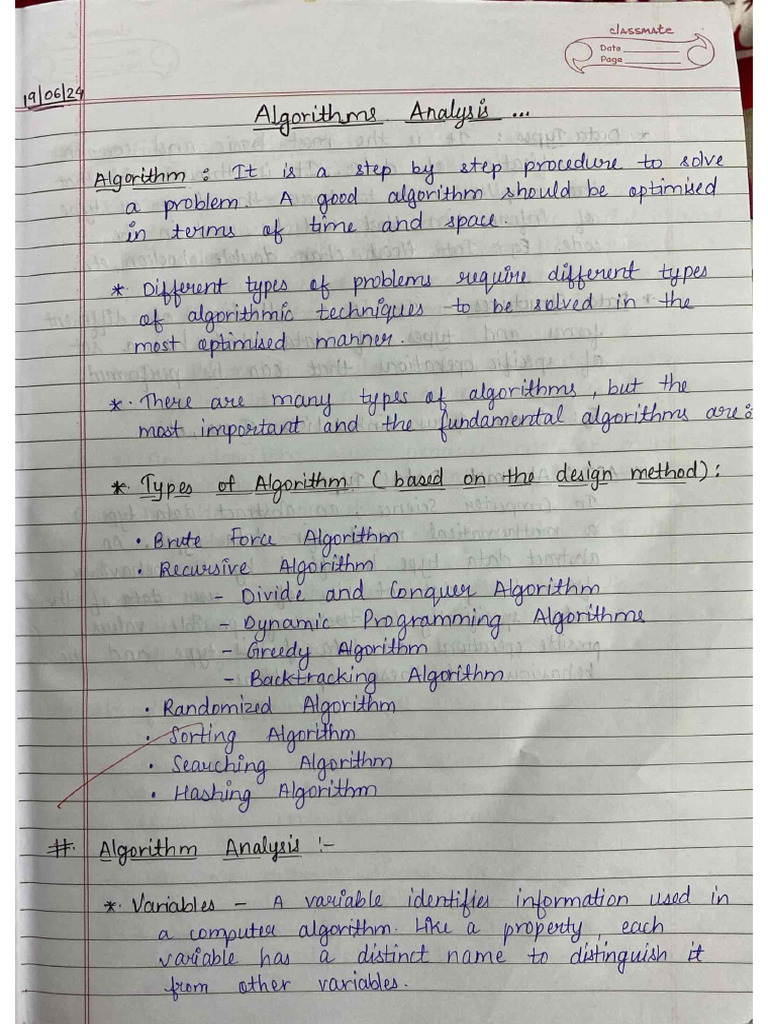 classmate
Date
Page
19/06/24
Algorithms Analysis ...
Algorithm : It is a step by step procedure to solve
a problem. A good algorithm should be optimised
in terms of time and space.
*. Different types of problems require different types
of algorithmic techniques to be solved in the
most optimised manner.
*. There are many types of algorithms, but the
most important and the fundamental algorithms are:
*. Types of Algorithm (based on the design method) :
• Brute Force Algorithm
• Recursive Algorithm
- Divide and Conquer Algorithm
- Dynamic Programming Algorithms
- Greedy Algorithm
- Backtracking Algorithm
• Randomized Algorithm
• Sorting Algorithm
• Searching Algorithm
• Hashing Algorithm
#. Algorithm Analysis :-
*. Variables - A variable identifies information used in
a computer algorithm. Like a property, each
variable has a distinct name to distinguish it
from other variables.